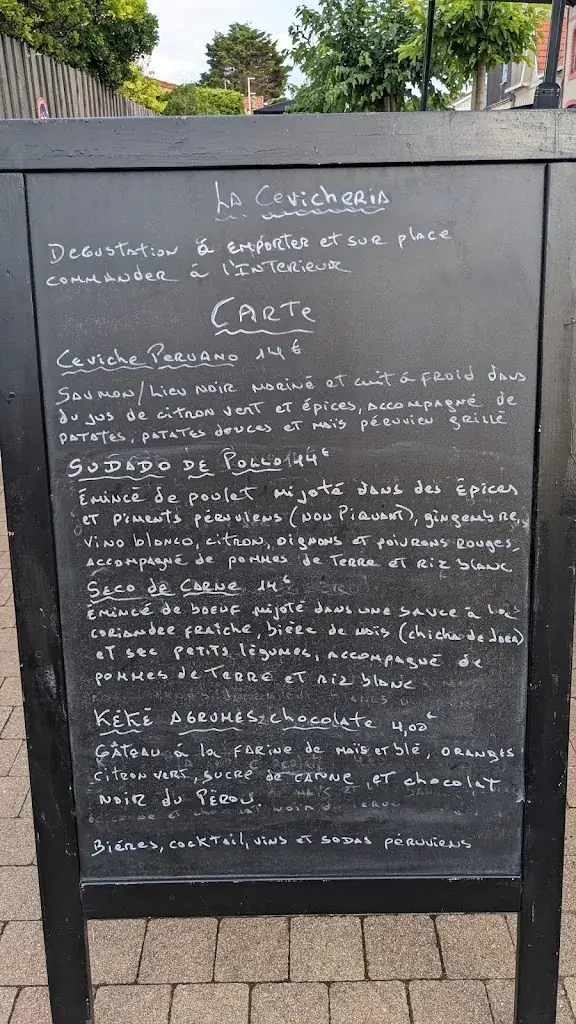 LA CEVICHERIA
DEGUSTATION à EMPORTER et SUR place
COMMANDER à l'INTERIEUR
CARTE
Ceviche PERUANO 14€
SAUMON/LIEU NOIR MARINÉ et cuit à FROID dans
du jus de citron vert et épices, accompagné de
patates, patates douces et maïs péruvien grillé
SUDADO DE POLLO 14€
Émincé de poulet mijoté dans des épices
et piments péruviens (NON PIQUANT), gingembre,
vino blanco, citron, oignons et poivrons rouges,
accompagné de pommes de terre et riz blanc
SECO DE CARNE 14€
Émincé de boeuf mijoté dans une sauce à la
coriandre fraîche, bière de maïs (chicha de Jora)
et ses petits légumes, accompagné de
pommes de terre et riz blanc
KÉKÉ AGRUMES chocolate 4,00€
Gâteau à la farine de maïs et blé, oranges
citron vert, sucre de canne et chocolat
noir du Pérou.
Bières, cocktail, vins et sodas péruviens